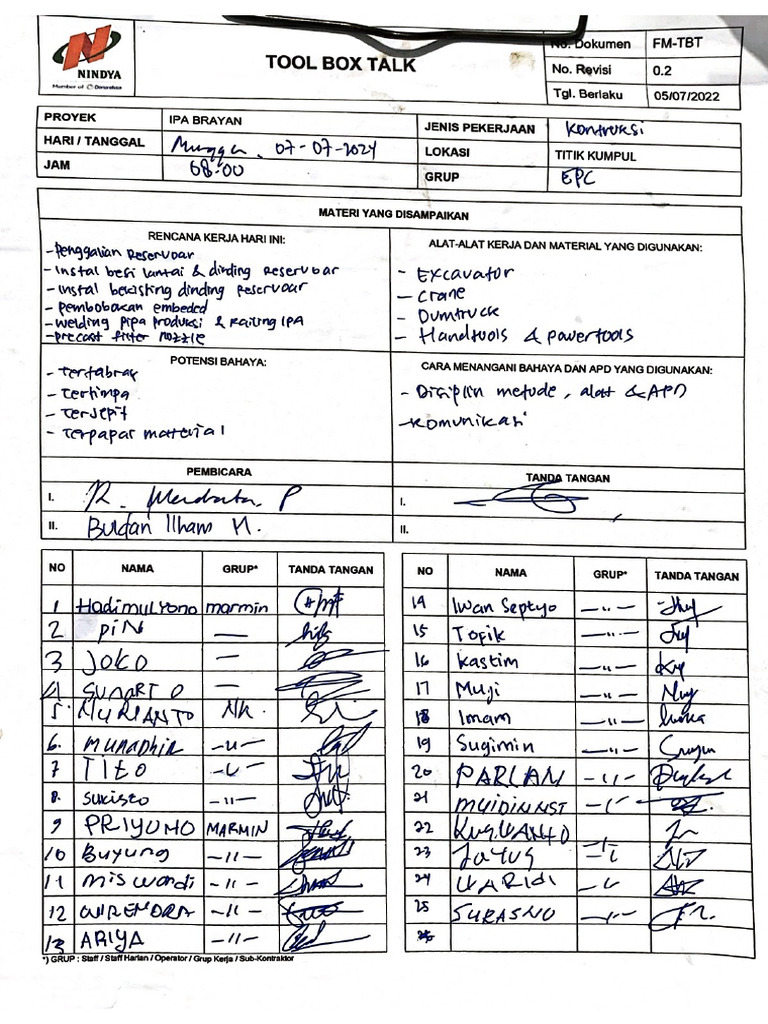 NINDYA
Member of Danareksa
TOOL BOX TALK
No. Dokumen FM-TBT
No. Revisi 0.2
Tgl. Berlaku 05/07/2022
PROYEK IPA BRAYAN
HARI / TANGGAL Minggu, 07-07-2024
JAM 08:00
JENIS PEKERJAAN Kontruksi
LOKASI TITIK KUMPUL
GRUP EPC
MATERI YANG DISAMPAIKAN
RENCANA KERJA HARI INI:
- Penggalian Reservoar
- Instal besi lantai & dinding Reservoar
- Instal bekisting dinding Reservoar
- Pembobokan embeded
- Welding pipa produksi & Railing IPA
- precast filter nozzle
ALAT-ALAT KERJA DAN MATERIAL YANG DIGUNAKAN:
- Excavator
- Crane
- Dumtruck
- Handtools & powertools
POTENSI BAHAYA:
- Tertabrak
- Tertimpa
- Terjepit
- Terpapar material
CARA MENANGANI BAHAYA DAN APD YANG DIGUNAKAN:
- Disiplin metode, alat & APD
- Komunikasi
PEMBICARA TANDA TANGAN
I. R. P I.
II. Ilham M. II.
NO NAMA GRUP* TANDA TANGAN
1 Hadimulyono marmin
2 PIN —
3 JOKO —
4 SUNARTO —
5. NURIANTO NK.
6. MUNADHIR -"-
7 TITO -"-
8. SUKISTO -"-
9 PRIYONO MARMIN
10 Buyung -"-
11 Miswandi -"-
12 WIRENDRA -"-
13 ARIYA -"-
NO NAMA GRUP* TANDA TANGAN
14 Iwan Septyo -"-
15 Topik -"-
16 Kastim -"-
17 Mugi -"-
18 Imam -"-
19 Sugimin -"-
20 PARLAN -"-
21 MUIDINNST -"-
22 KUSWANTO -"-
23 -"-
24 WARIDI -"-
25 SURASNO -"-
26
*) GRUP : Staff / Staff Harian / Operator / Grup Kerja / Sub-Kontraktor